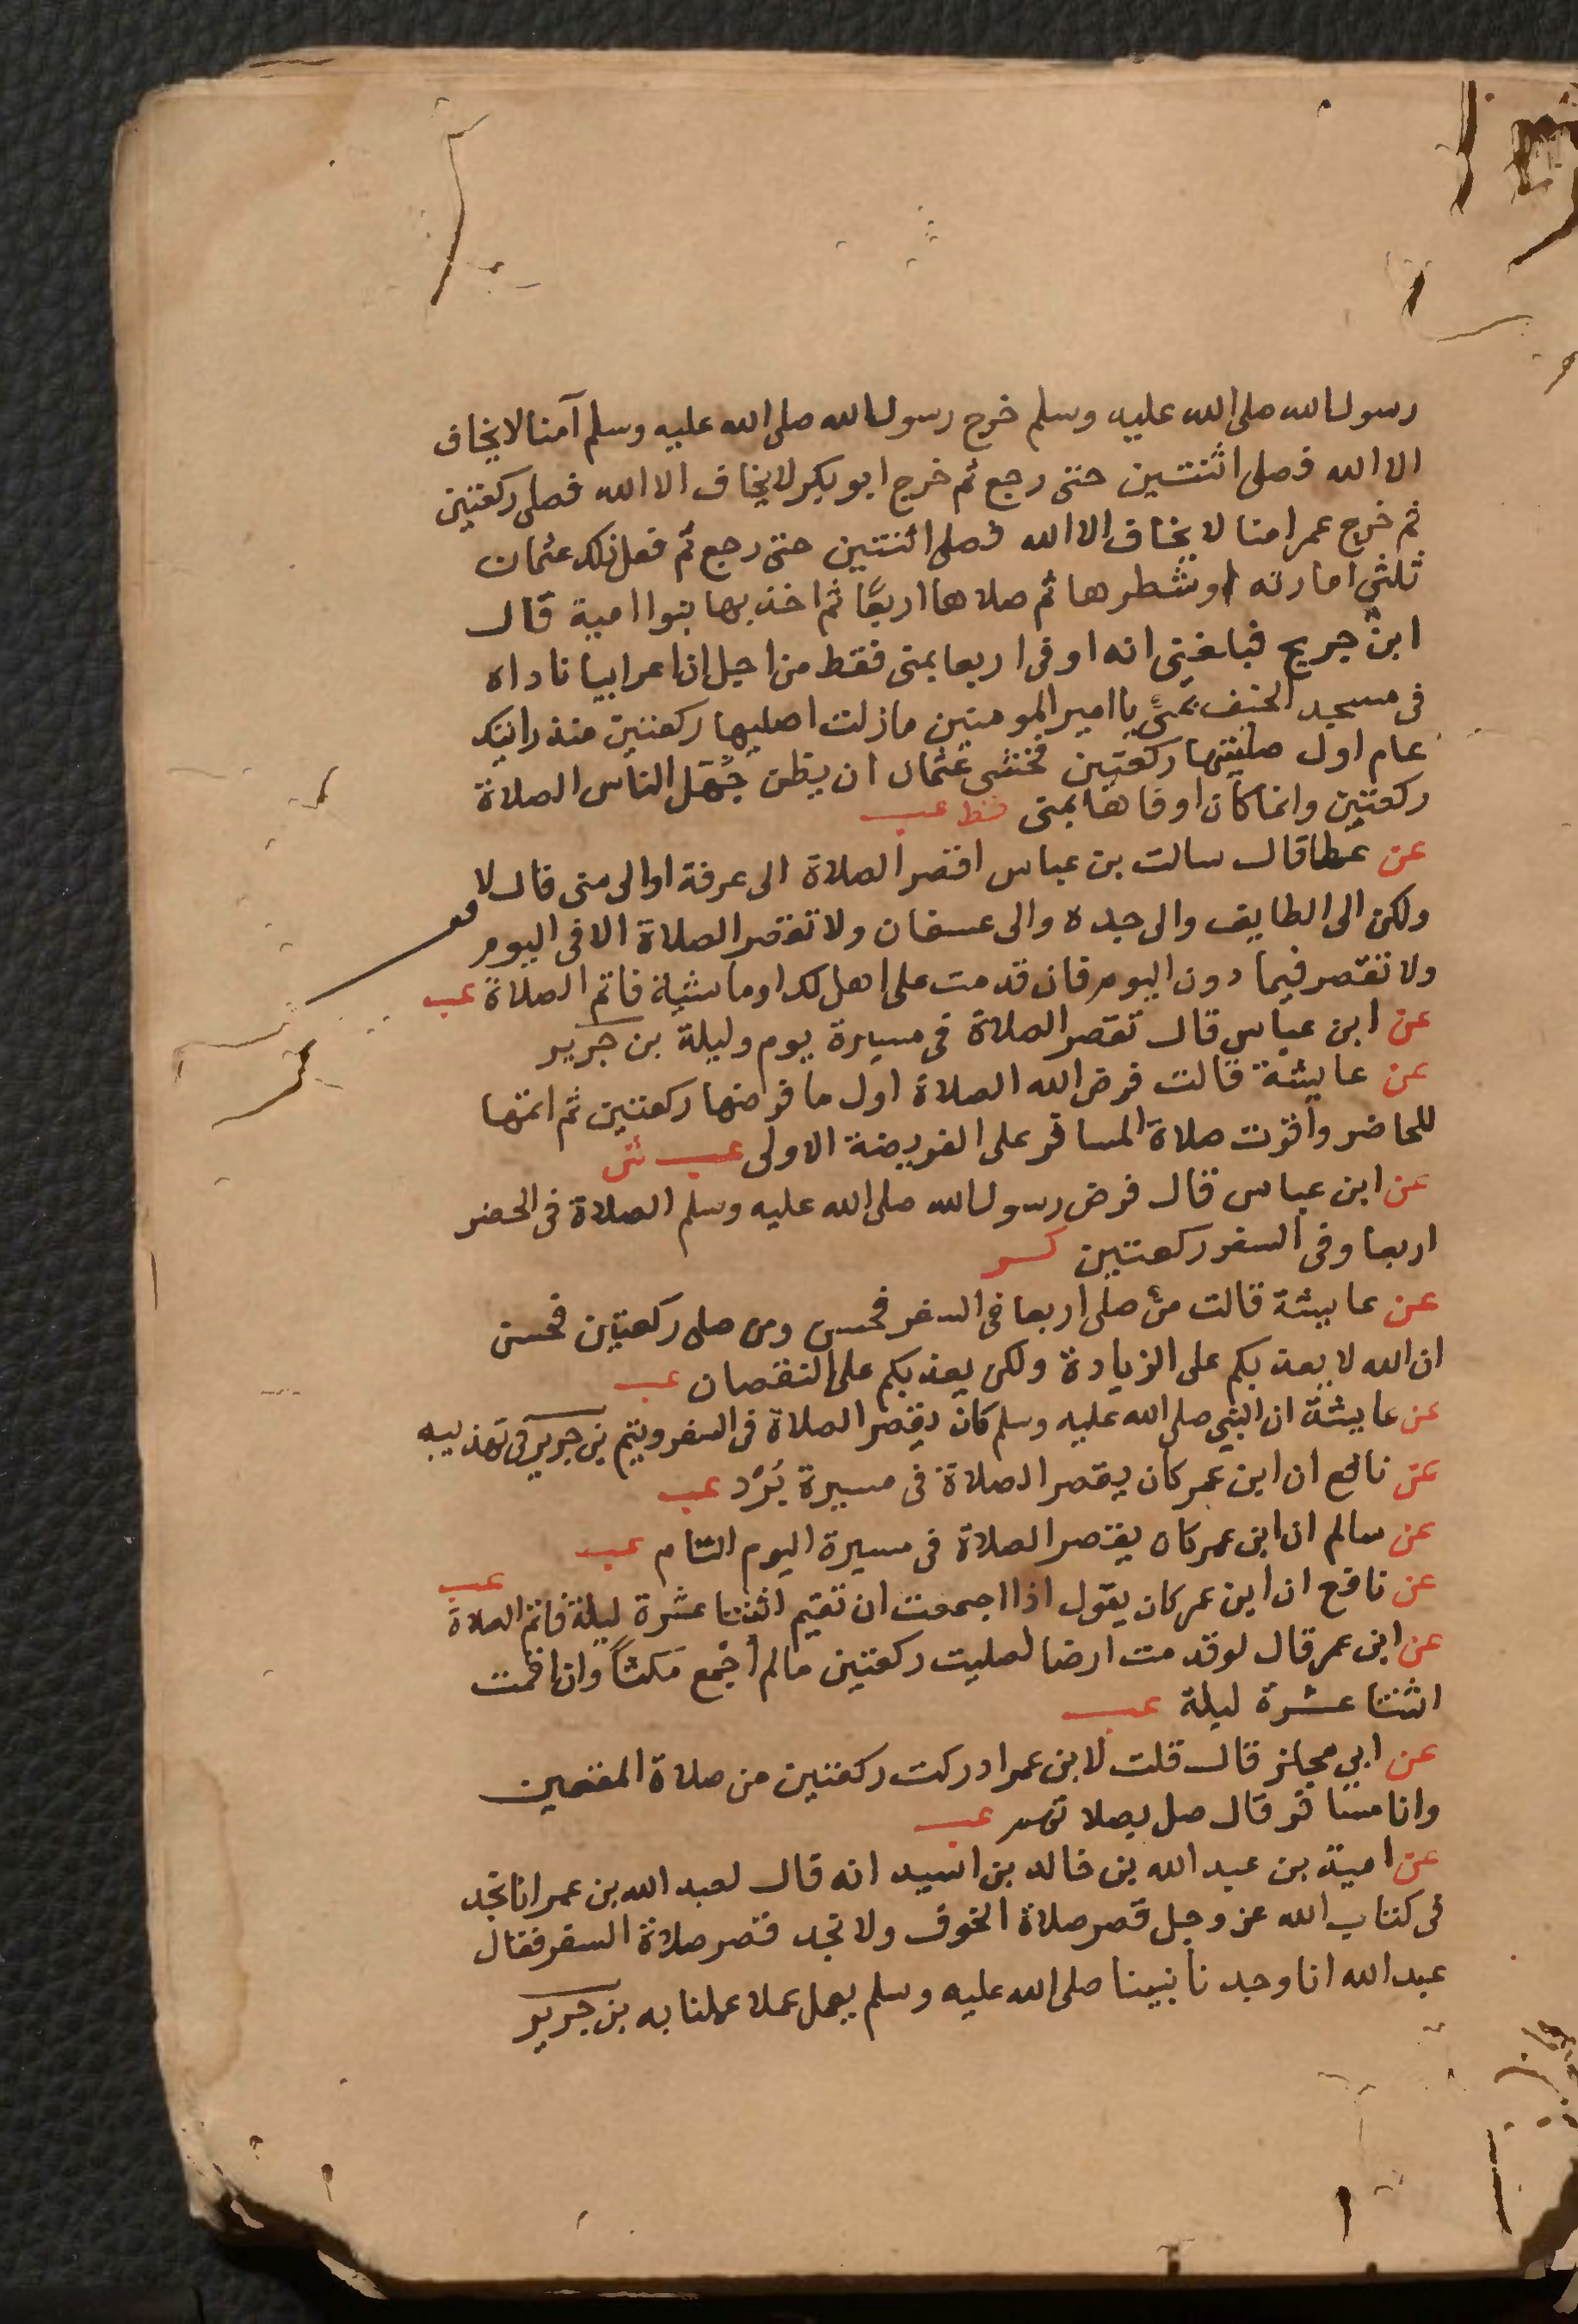 رسول الله صلى الله عليه وسلم خرج رسول الله صلى الله عليه وسلم آمنا لا يخاف
الا الله فصلى اثنتين حتى رجع ثم خرج ابو بكر لا يخاف الا الله فصلى ركعتين
ثم خرج عمر امنا لا يخاف الا الله فصلى اثنتين حتى رجع ثم فعل ذلك عثمان
ثلثي امارته او شطرها ثم صلاها اربعًا ثم اخذ بها بنوا امية قال
ابن جريج فبلغني انه اوفى اربعا بمنى فقط من اجل ان اعرابيا ناداه
فى مسجد الخيف بمنًى يا امير المومنين مازلت اصليها ركعتين منذ رايتك
عام اول صليتها ركعتين فخشى عثمان ان يظن جُهّل الناس الصلاة
ركعتين وانما كان اوفاها بمنى قط عب
عن عطا قال سالت بن عباس اقصر الصلاة الى عرفة او الى منى قال لا
ولكن الى الطايف والى جده والى عسفان ولا تقصر الصلاة الا فى اليوم
ولا تقصر فيما دون اليوم فان قدمت على اهل لك او ماشية فاتم الصلاة عب
عن ابن عباس قال تقصر الصلاة فى مسيرة يوم وليلة بن جرير
عن عايشة قالت فرض الله الصلاة اول ما فرضها ركعتين ثم اتمها
للحاضر واقرت صلاة المسافر على الفريضة الاولى عب ش
عن ابن عباس قال فرض رسول الله صلى الله عليه وسلم الصلاة فى الحضر
اربعا وفى السفر ركعتين كر
عن عايشة قالت من صلى اربعا فى السفر فحسن ومن صلى ركعتين فحسن
ان الله لا يعذبكم على الزيادة ولكن يعذبكم على النقصان عب
عن عايشة ان النبي صلى الله عليه وسلم كان يقصر الصلاة فى السفر ويتم بن جرير فى تهذيبه
عن نافع ان ابن عمر كان يقصر الصلاة فى مسيرة بُرُد عب
عن سالم ان ابن عمر كان يقصر الصلاة فى مسيرة اليوم التام عب
عن نافع ان ابن عمر كان يقول اذا اجمعت ان تقيم اثنتا عشرة ليلة فاتم الصلاة عب
عن ابن عمر قال لو قدمت ارضا لصليت ركعتين مالم أجْمع مَكثاً وان اقمت
اثنتا عشرة ليلة عب
عن ابي مجلز قال قلت لابن عمر ادركت ركعتين من صلاة المقيمين
وانا مسافر قال صل بصلاتهم عب
عن امية بن عبد الله بن خالد بن اسيد انه قال لعبد الله بن عمر انا نجد
فى كتاب الله عز وجل قصر صلاة الخوف ولا نجد قصر صلاة السفر فقال
عبد الله انا وجدنا نبينا صلى الله عليه وسلم يعمل عملا عملنا به بن جرير